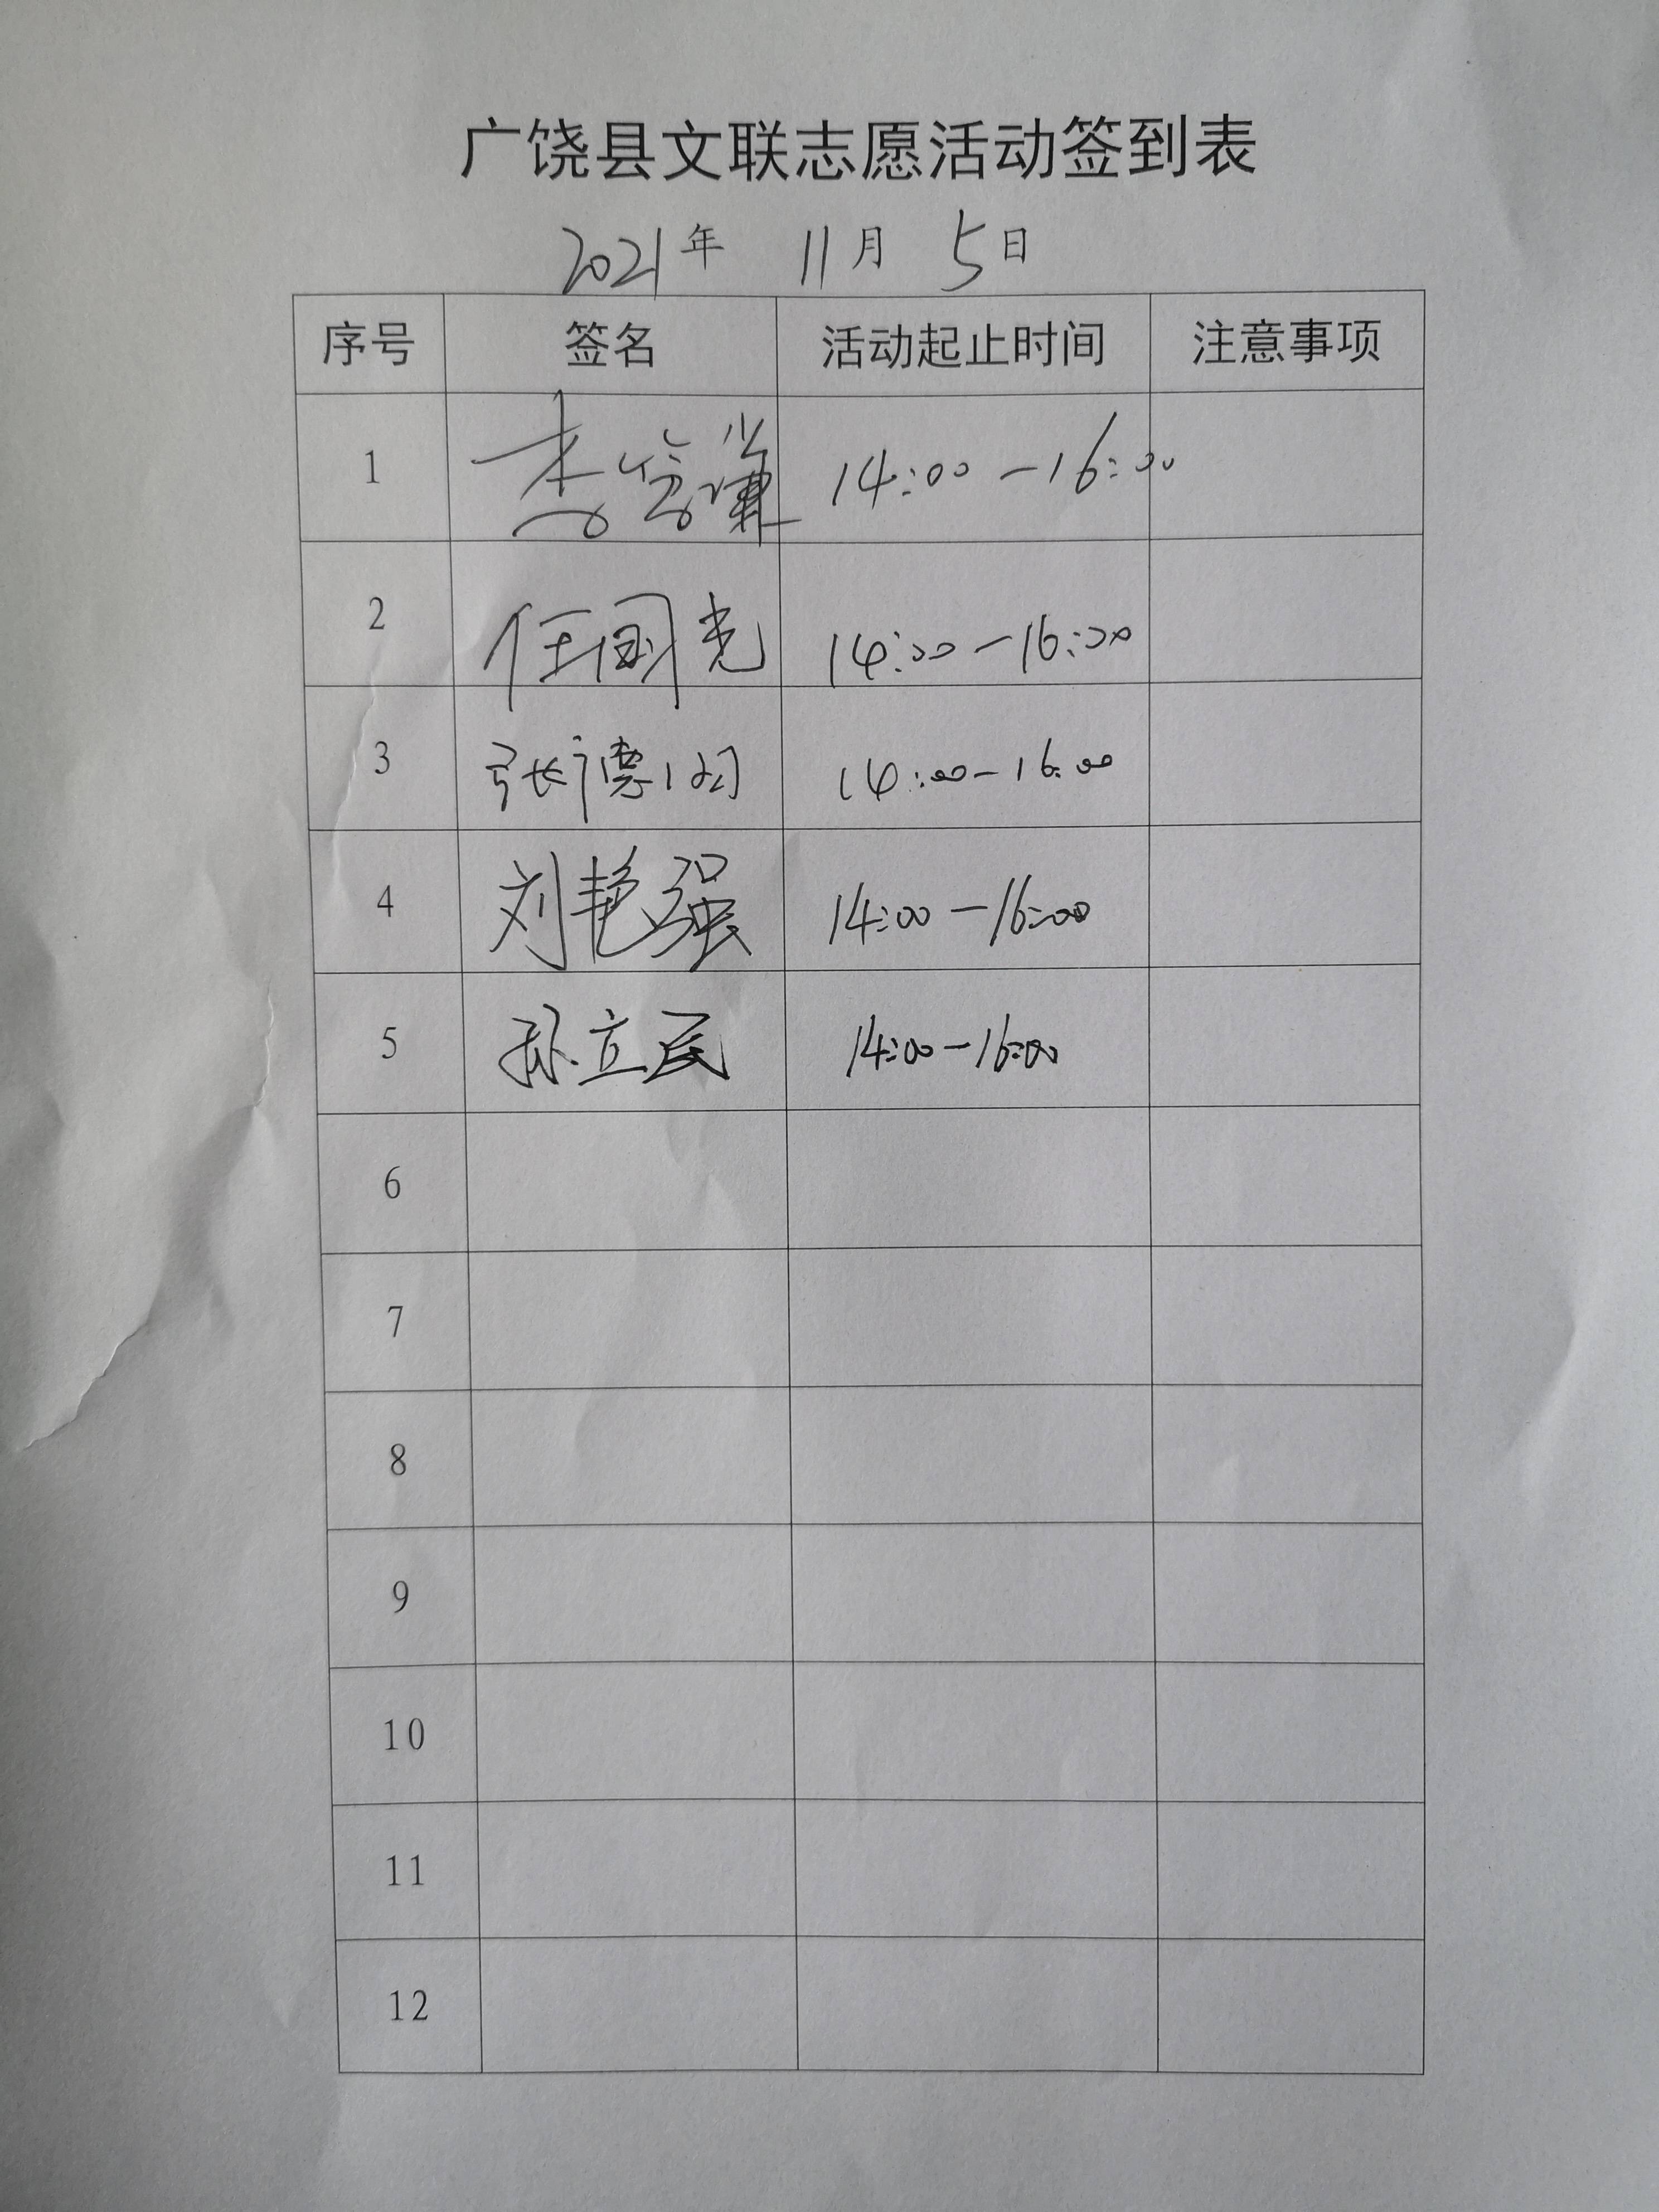 广饶县文联志愿活动签到表
2021年 11月 5日
序号 签名 活动起止时间 注意事项
1 李 谦 14:00-16:00
2 任国光 14:00-16:00
3 张德 14:00-16:00
4 刘艳强 14:00-16:00
5 孙立民 14:00-16:00
6
7
8
9
10
11
12